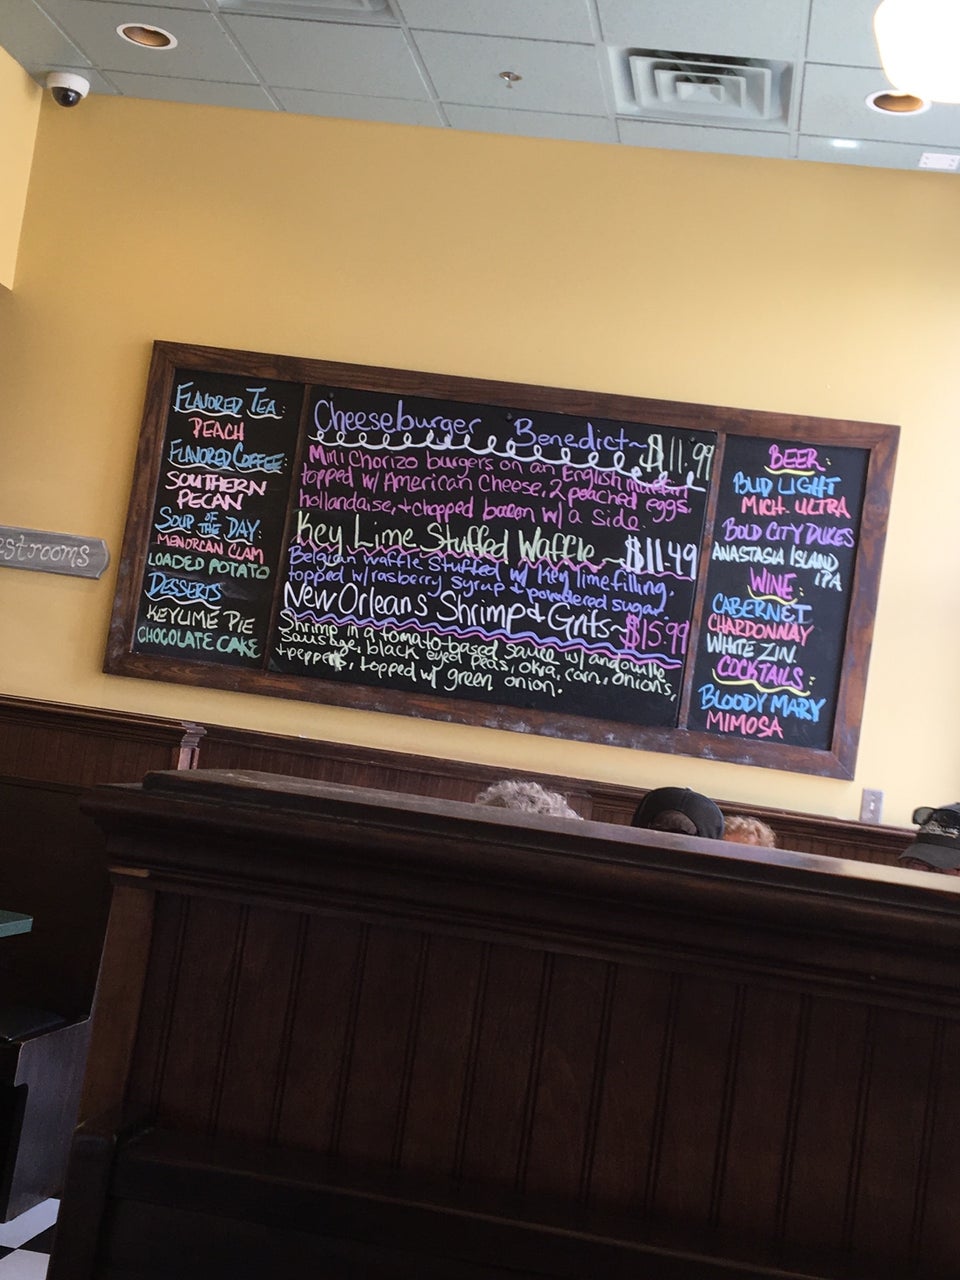 estrooms
FLAVORED TEA:
PEACH
FLAVORED COFFEE:
SOUTHERN
PECAN
SOUP OF THE DAY:
MENORCAN CLAM
LOADED POTATO
DESSERTS
KEYLIME PIE
CHOCOLATE CAKE
Cheeseburger Benedict~$11.99
Mini chorizo burgers on an English muffin
topped w/ American Cheese, 2 poached eggs,
hollandaise, + chopped bacon w/ a side.
Key Lime Stuffed Waffle~$11.49
Belgian waffle stuffed w/ key lime filling,
topped w/ rasberry syrup + powdered sugar.
New Orleans Shrimp & Grits~$15.99
Shrimp in a tomato-based sauce w/ andouille
sausage, black eyed peas, okra, corn, onions,
+ peppers, topped w/ green onion.
BEER:
BUD LIGHT
MICH. ULTRA
BOLD CITY DUKES
ANASTASIA ISLAND
IPA
WINE:
CABERNET
CHARDONNAY
WHITE ZIN.
COCKTAILS:
BLOODY MARY
MIMOSA